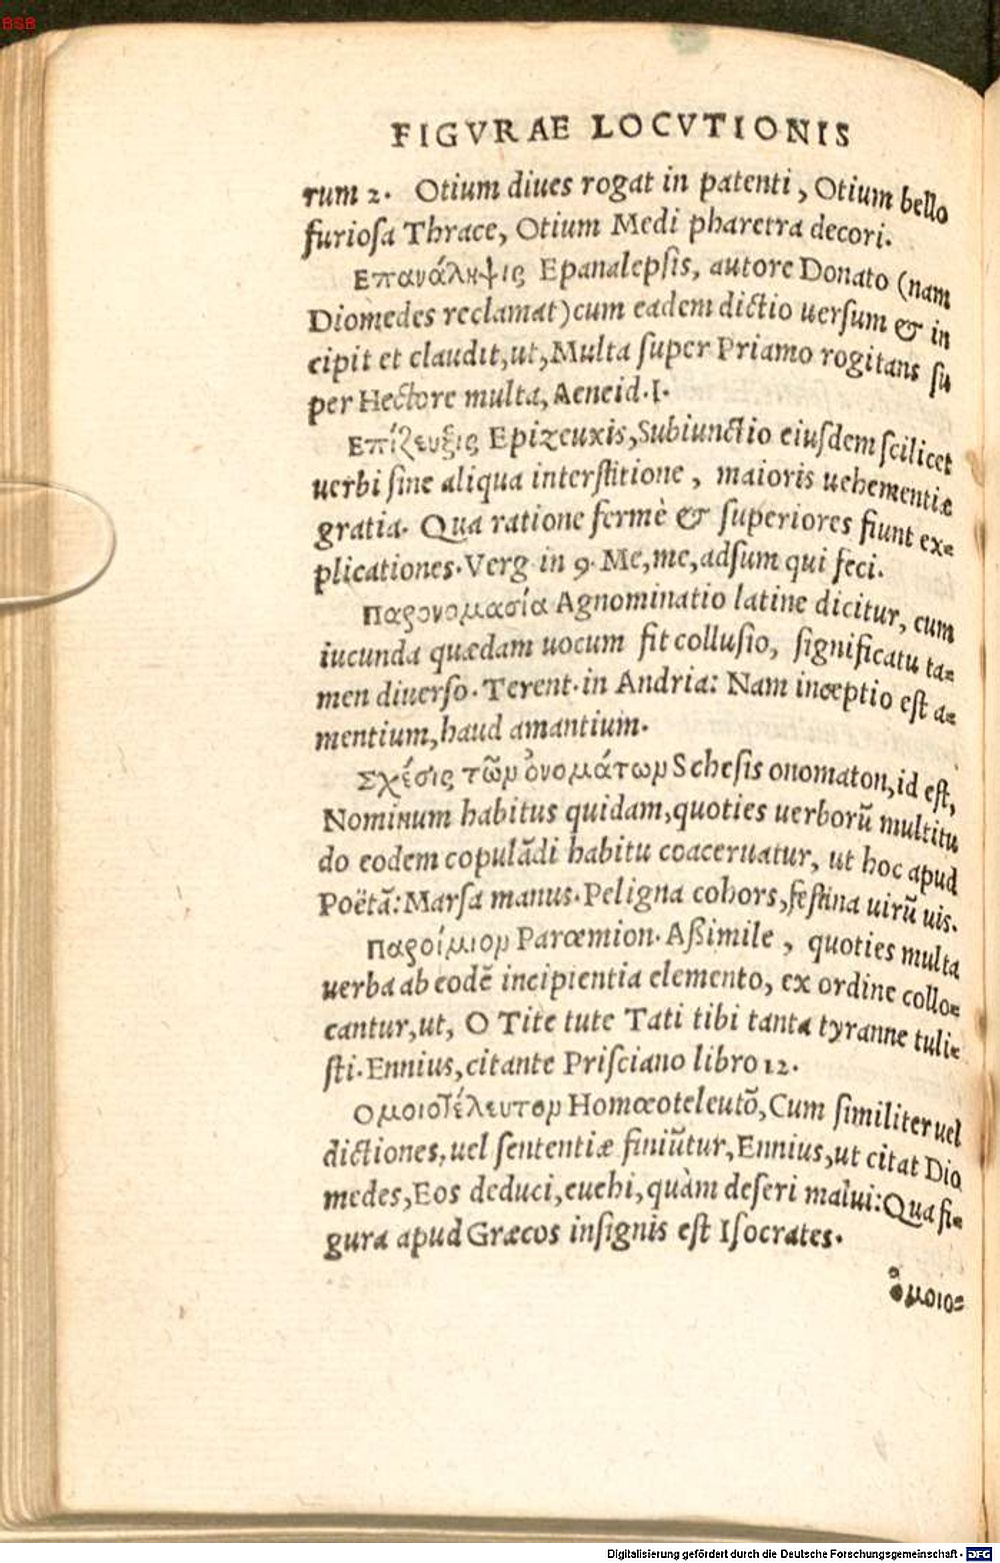 BSB
FIGVRAE LOCVTIONIS
rum 2. Otium diues rogat in patenti, Otium bello
furioſa Thrace, Otium Medi pharetra decori.
Επανάληψις Epanalepſis, autore Donato (nam
Diomedes reclamat) cum eadem dictio uerſum & in
cipit et claudit, ut, Multa ſuper Priamo rogitans ſu
per Hectore multa, Aeneid. I.
Επίζευξις Epizeuxis, Subiunctio eiuſdem ſcilicet
uerbi ſine aliqua interſtitione, maioris uehementiæ
gratia. Qua ratione fermè & ſuperiores fiunt ex=
plicationes. Verg in 9. Me, me, adſum qui feci.
Παρονομασία Agnominatio latine dicitur, cum
iucunda quædam uocum fit colluſio, ſignificatu ta=
men diuerſo. Terent. in Andria: Nam inceptio eſt a=
mentium, haud amantium.
Σχέσις τῶν ὀνομάτων Scheſis onomaton, id eſt,
Nominum habitus quidam, quoties uerborũ multitu
do eodem copulãdi habitu coaceruatur, ut hoc apud
Poëtã: Marſa manus. Peligna cohors, feſtina uirũ uis.
Παροίμιον Parœmion. Aßimile, quoties multa
uerba ab eodẽ incipientia elemento, ex ordine collo=
cantur, ut, O Tite tute Tati tibi tanta tyranne tuli=
ſti. Ennius, citante Priſciano libro 12.
Ομοιοτέλευτον Homœoteleutõ, Cum ſimiliter uel
dictiones, uel ſententiæ finiũtur, Ennius, ut citat Dio
medes, Eos deduci, euehi, quàm deſeri malui: Qua fi=
gura apud Græcos inſignis eſt Iſocrates.
ὁμοιο=
Digitalisierung gefördert durch die Deutsche Forschungsgemeinschaft - DFG